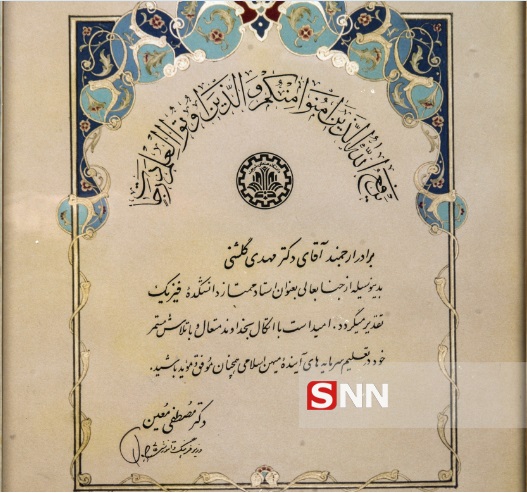 یرفع الله الذین امنوا منکم و الذین اوتوا العلم درجات
برادر ارجمند آقای دکتر مهدی گلشنی
بدینوسیله از جنابعالی بعنوان استاد ممتاز دانشکدهٔ فیزیک
تقدیر میگردد. امید است با اتکال بخداوند متعال و با تلاش مستمر
خود در تعلیم سرمایه های آیندهٔ میهن اسلامی همچنان موفق و مؤید باشید.
دکتر مصطفی معین
وزیر فرهنگ و آموزش عالی
SNN